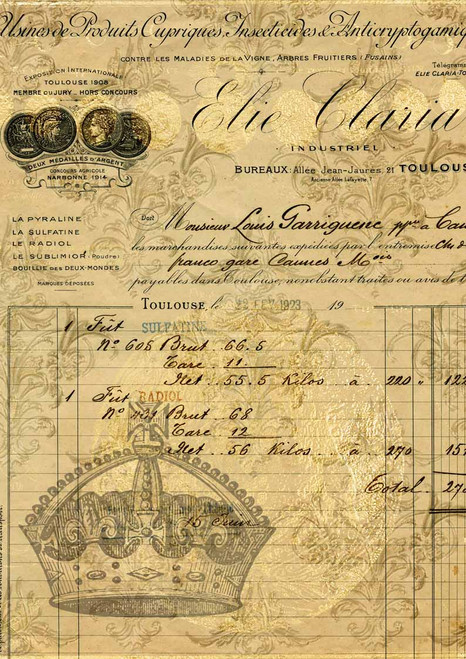 Usines de Produits Cupriques, Insecticides & Anticryptogamiq
CONTRE LES MALADIES DE LA VIGNE, ARBRES FRUITIERS (FUSAINS)
EXPOSITION INTERNATIONALE
TOULOUSE 1908
MEMBRE DU JURY - HORS CONCOURS
Télégrams
ELIE CLARIA-TO
Elie Claria
INDUSTRIEL
DEUX MÉDAILLES D'ARGENT
CONCOURS AGRICOLE
NARBONNE 1914
BUREAUX: Allée Jean-Jaurès, 21 TOULOUS
Ancienne Allée Lafayette
LA PYRALINE
LA SULFATINE
LE RADIOL
LE SUBLIMIOR (Poudre)
BOUILLIE DES DEUX-MONDES
MARQUES DÉPOSÉES
Doit Monsieur Louis Garriguenc à Cau
les marchandises suivantes expédiées par l'entremise Ch. d
franco gare Caunes
payables dans Toulouse, nonobstant traites ou avis de t
Toulouse, le 1923 19
1 Fût SULFATINE
Nº 608 Brut 66.5
Tare 11
Net 55.5 Kilos à 220 " 122
1 Fût RADIOL
Nº Brut 68
Tare 12
Net 56 Kilos à 270 15
Total 27
15 Juin